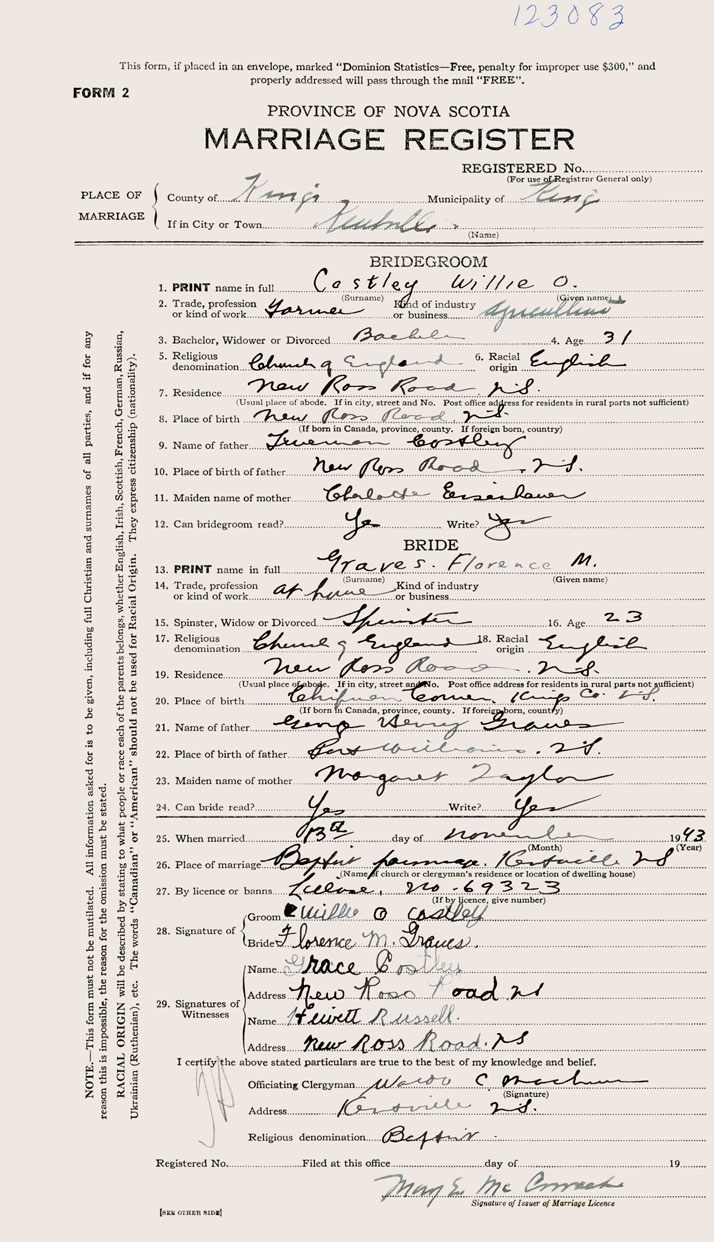 123083
This form, if placed in an envelope, marked "Dominion Statistics—Free, penalty for improper use $300," and
properly addressed will pass through the mail "FREE".
FORM 2
PROVINCE OF NOVA SCOTIA
MARRIAGE REGISTER
REGISTERED No.
(For use of Registrar General only)
PLACE OF MARRIAGE
County of Kings Municipality of King
If in City or Town Kentville
(Name)
BRIDEGROOM
1. PRINT name in full Costley Willie O.
(Surname) (Given name)
2. Trade, profession or kind of work Farmer Kind of industry or business Agriculture
3. Bachelor, Widower or Divorced Bachelor 4. Age 31
5. Religious denomination Church of England 6. Racial origin English
7. Residence New Ross Road N.S.
(Usual place of abode. If in city, street and No. Post office address for residents in rural parts not sufficient)
8. Place of birth New Ross Road N.S.
(If born in Canada, province, county. If foreign born, country)
9. Name of father Trueman Costley
10. Place of birth of father New Ross Road, N.S.
11. Maiden name of mother Charlotte Eisenhauer
12. Can bridegroom read? Yes Write? Yes
BRIDE
13. PRINT name in full Graves. Florence M.
(Surname) (Given name)
14. Trade, profession or kind of work at home Kind of industry or business
15. Spinster, Widow or Divorced Spinster 16. Age 23
17. Religious denomination Church of England 18. Racial origin English
19. Residence New Ross Road, N.S.
(Usual place of abode. If in city, street and No. Post office address for residents in rural parts not sufficient)
20. Place of birth Chipman Corner, Kings Co. N.S.
(If born in Canada, province, county. If foreign born, country)
21. Name of father George Henry Graves
22. Place of birth of father Port Williams, N.S.
23. Maiden name of mother Margaret Taylor
24. Can bride read? Yes Write? Yes
25. When married 13th day of November 1943
(Month) (Year)
26. Place of marriage Baptist parsonage, Kentville N S
(Name of church or clergyman's residence or location of dwelling house)
27. By licence or banns License, No. 69323
(If by licence, give number)
28. Signature of
Groom Willie O Costley
Bride Florence M. Graves.
29. Signatures of Witnesses
Name Grace Costley
Address New Ross Road NS
Name Hewitt Russell.
Address New Ross Road. NS
I certify the above stated particulars are true to the best of my knowledge and belief.
Officiating Clergyman C
(Signature)
Address Kentville N.S.
Religious denomination Baptist
Registered No. Filed at this office day of 19
Mary E. McCormack
Signature of Issuer of Marriage Licence
[SEE OTHER SIDE]
NOTE.—This form must not be mutilated. All information asked for is to be given, including full Christian and surnames of all parties, and if for any
reason this is impossible, the reason for the omission must be stated.
RACIAL ORIGIN will be described by stating to what people or race each of the parents belongs, whether English, Irish, Scottish, French, German, Russian,
Ukrainian (Ruthenian), etc. The words "Canadian" or "American" should not be used for Racial Origin. They express citizenship (nationality).